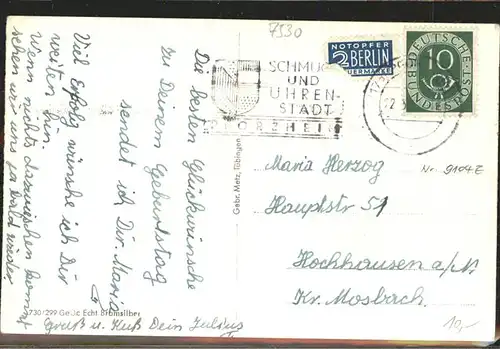 7530
NOTOPFER
2 BERLIN
STEUERMARKE
DEUTSCHE
BUNDESPOST
10
SCHMUCK
UND
UHREN-
STADT
PFORZHEIM
Die besten Glückwünsche
zu Deinem Geburtstag
sendet ich Dir Maria
Viel Erfolg wünsche ich Dir
weiten hin.
Wenn nichts dazwischen kommt
sehen wir uns ja bald wieder
Gruß u. Kuß Dein Julius
Gebr. Metz, Tübingen
Maria Herzog
Hauptstr 51
Hochhausen a/N.
Kr. Mosbach.
Nr. 9104 E
730/299 Ges. Gesch. Echt Bromsilber
10,-